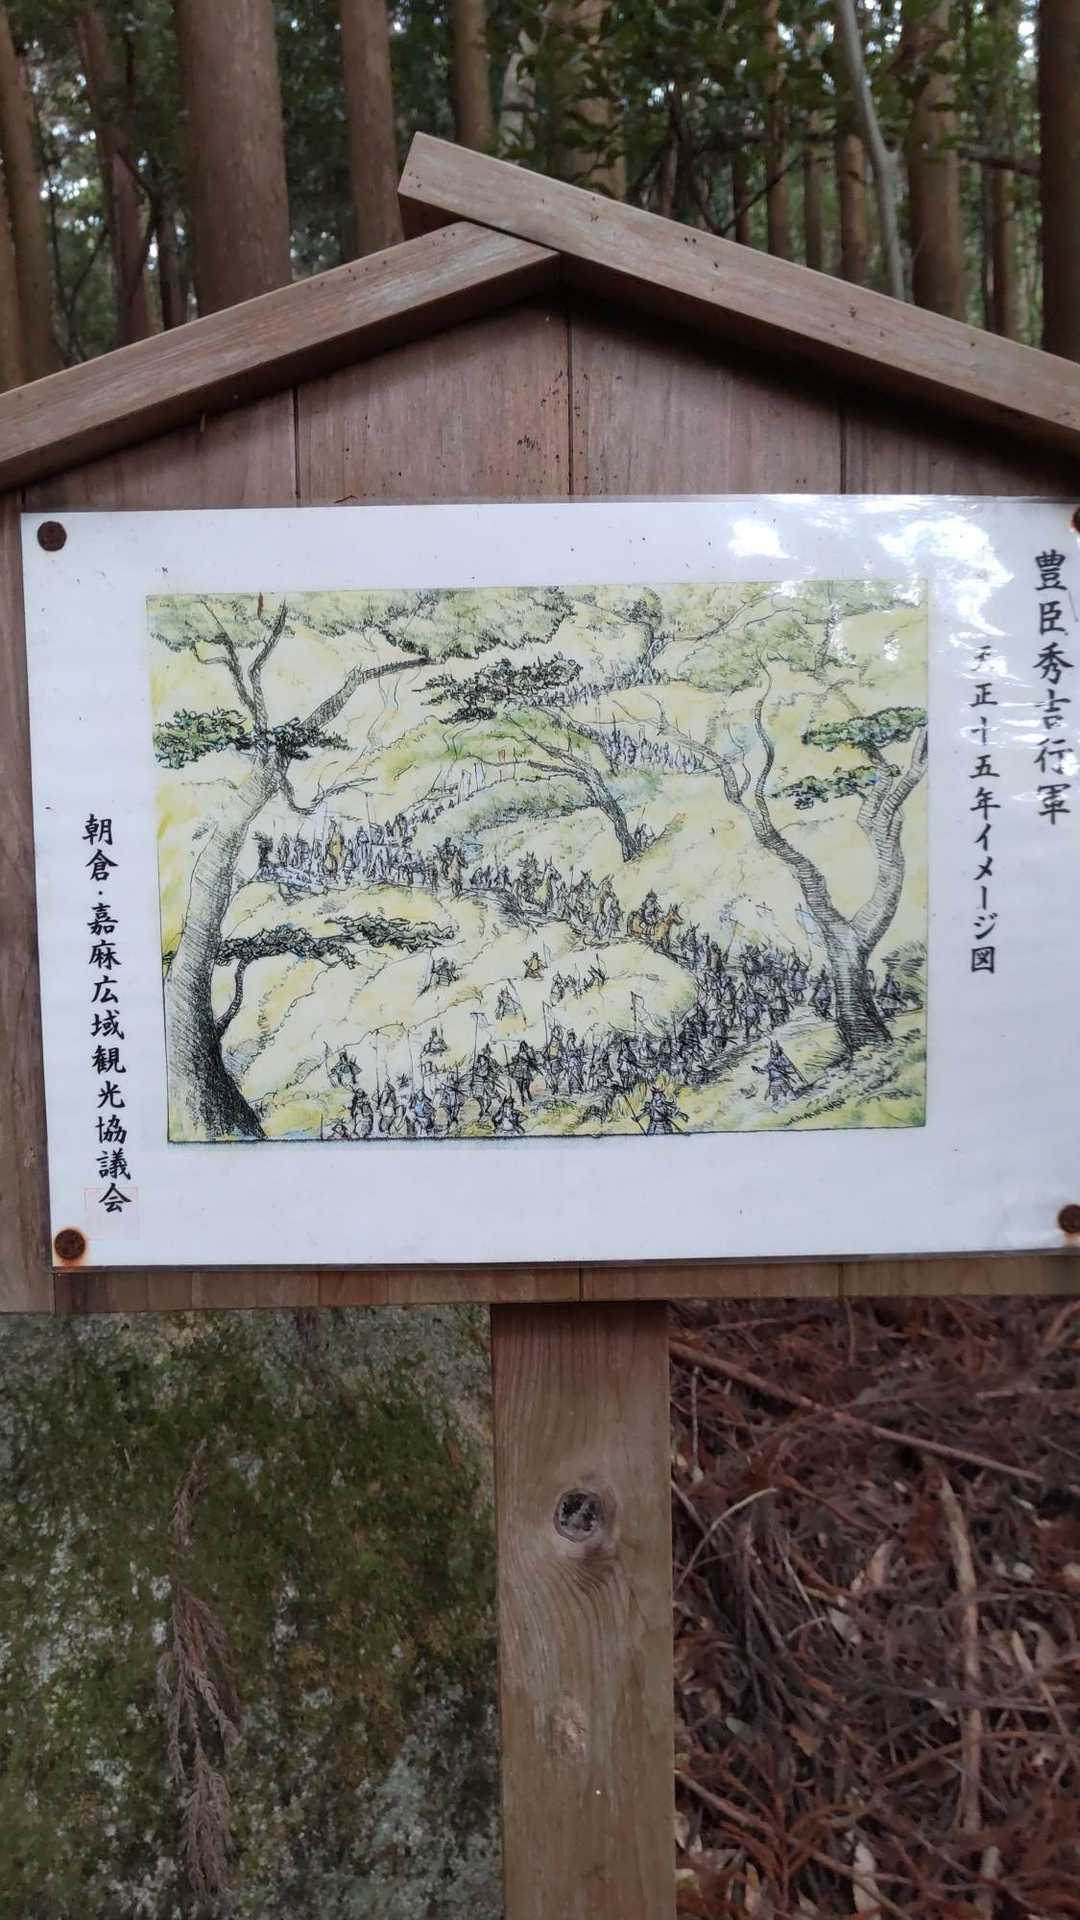 豊臣秀吉行軍
天正十五年イメージ図
朝倉・嘉麻広域観光協議会